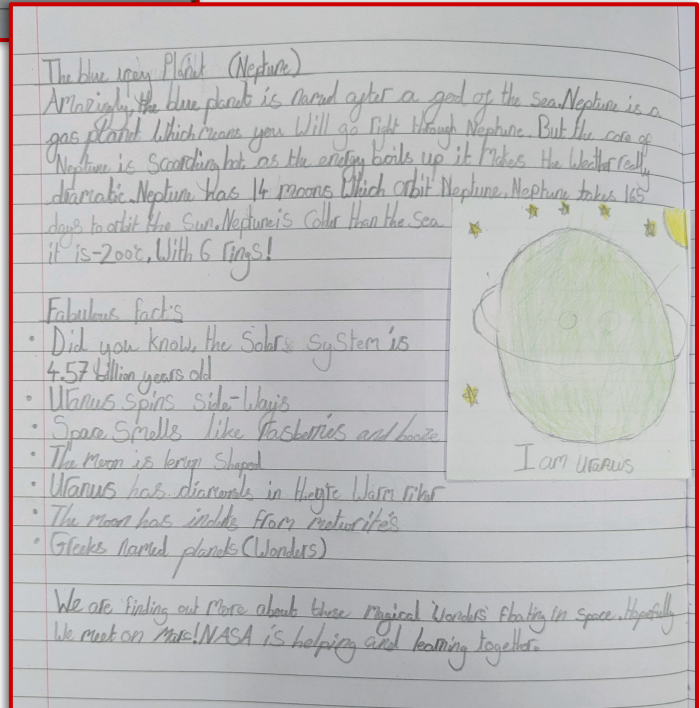 The blue iney Planet (Neptune)
Amazingly, the blue planet is named after a god of the sea. Neptune is a
gas planet Which means you Will go right through Neptune. But the core of
Neptune is Scoarding hot as the energy boils up it Makes the Weather really
dramatic. Neptune has 14 moons Which orbit Neptune. Neptune takes 165
days to orbit the Sun. Neptune is Coller than the Sea
it is -200°c, With 6 rings!
Fabulous facts
• Did you know, the Solar System is
4.57 billion years old
• Uranus spins side-Ways
• Space Smells like rasberries and booze
• The Moon is lemun Shaped
• Uranus has diamonds in
• The moon has from meteorites
• Greeks named planets (Wonders)
We are finding out More about these magical Wonders floating in space. Hopefully
We meet on Mars! NASA is helping and learning together.
I am Uranus